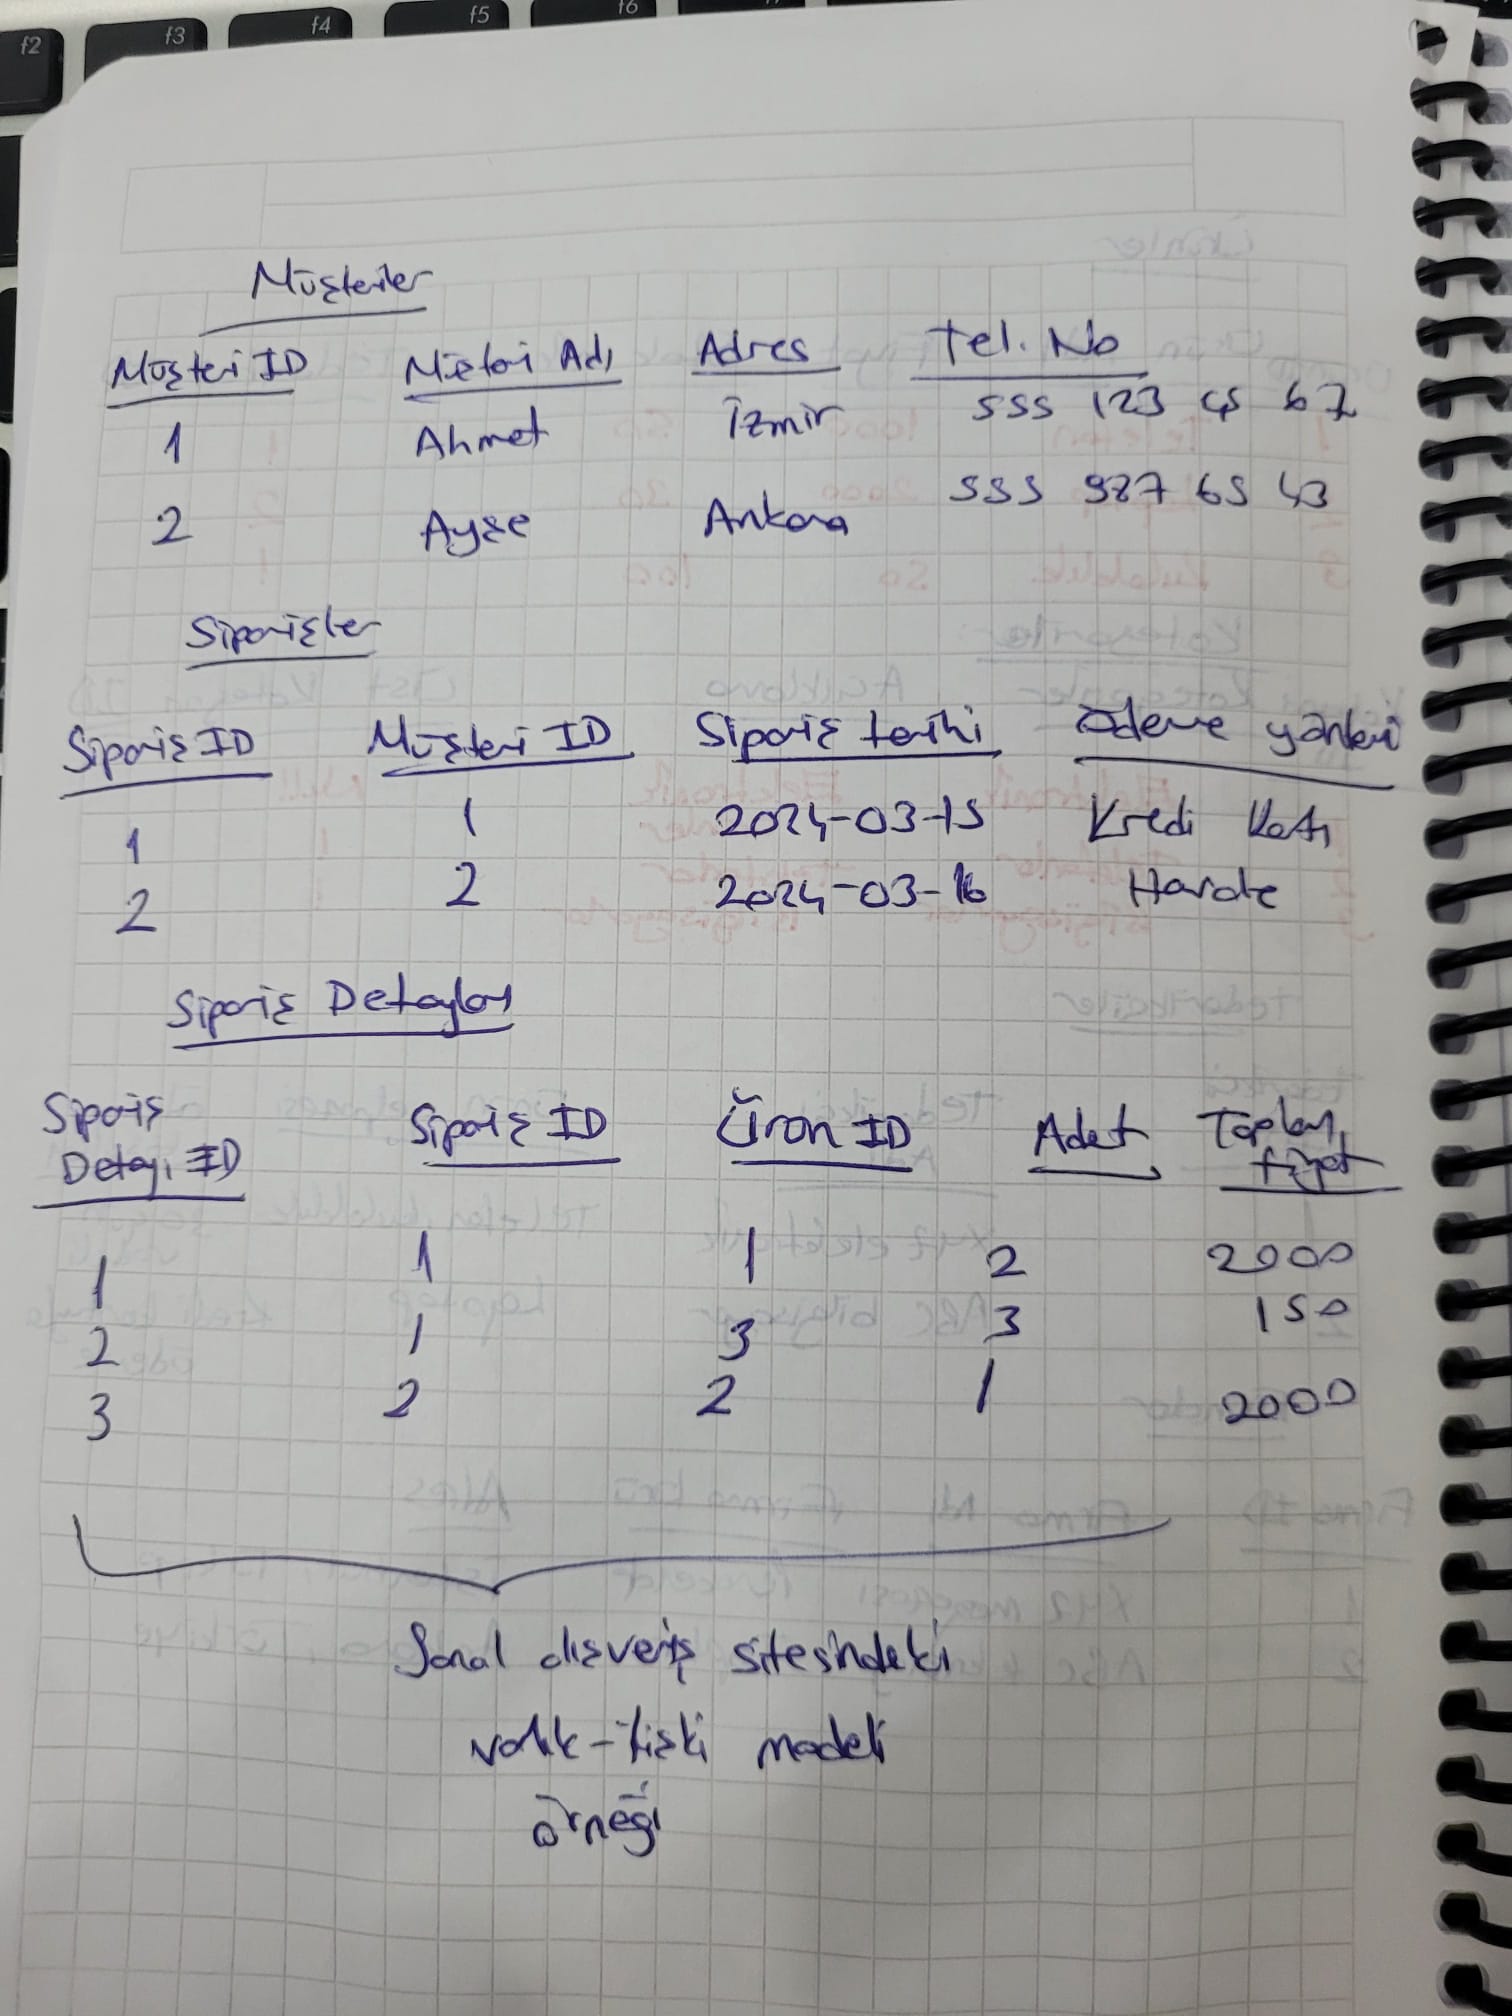 f2 f3 f4 f5 f6
Müşteriler
Müşteri ID Müşteri Adı Adres Tel. No
1 Ahmet İzmir 555 123 45 67
2 Ayşe Ankara 555 987 65 43
Siparişler
Sipariş ID Müşteri ID Sipariş tarihi Ödeme yöntemi
1 1 2024-03-15 Kredi Kartı
2 2 2024-03-16 Havale
Sipariş Detayları
Sipariş
Detayı ID Sipariş ID Ürün ID Adet Toplam
fiyat
1 1 1 2 2000
2 1 3 3 150
3 2 2 1 2000
Sanal alışveriş sitesindeki
varlık-ilişki modeli
örneği